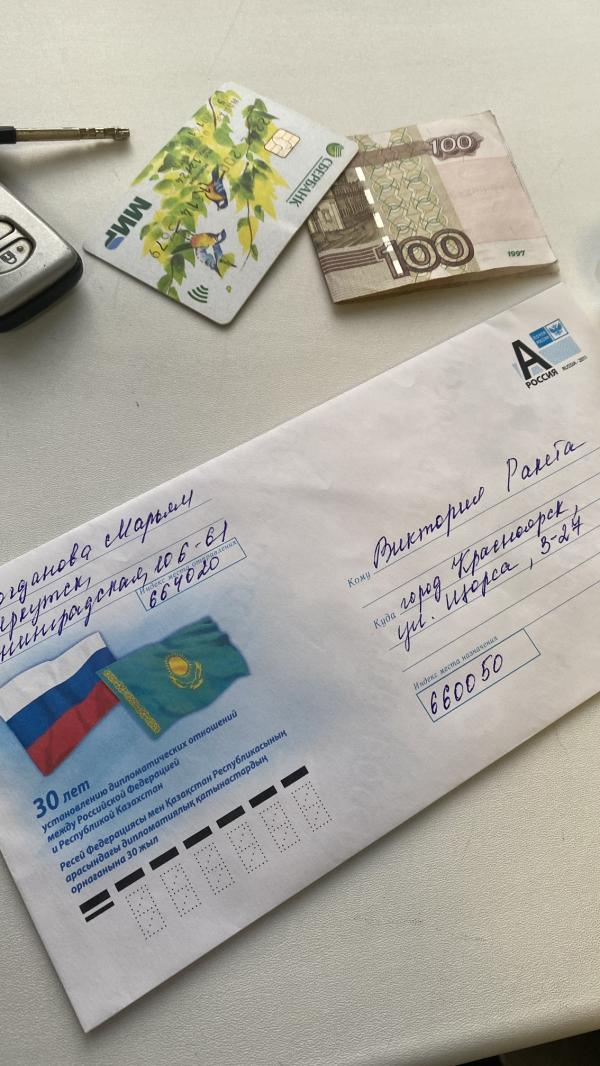 СБЕРБАНК
МИР
100
100
1997
ПОЧТА РОССИИ
А
РОССИЯ
RUSSIA · 2011
огданова Марьям
ркутск,
нинградская, 106-61
Индекс места отправления
664020
Кому Виктория Ракета
Куда город Красноярск,
ул. Щорса, 3-27
Индекс места назначения
660050
30 лет
установлению дипломатических отношений
между Российской Федерацией
и Республикой Казахстан
Ресей Федерациясы мен Қазақстан Республикасының
арасындағы дипломатиялық қатынастардың
орнағанына 30 жыл